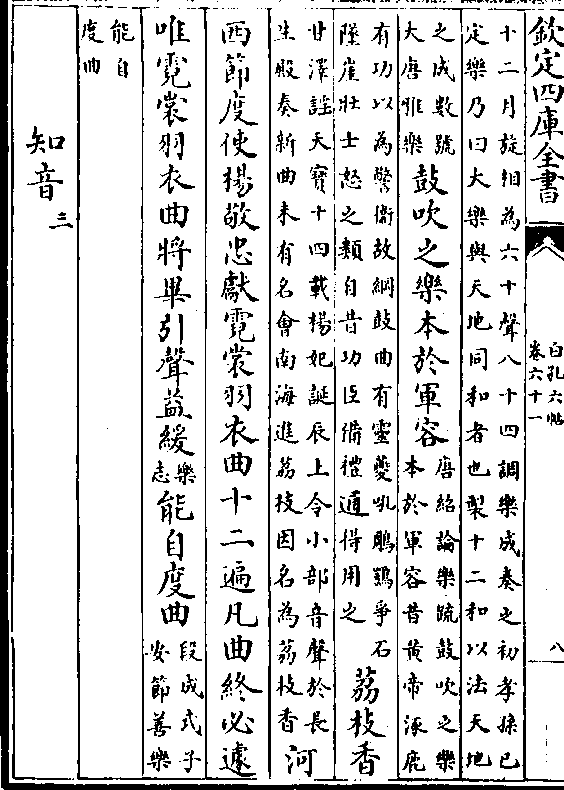 欽定四庫全書
白孔六帖
卷六十一
八
十二月旋相為六十聲八十四調樂成奏之初孝孫已
定樂乃曰大樂與天地同和者也製十二和以法天地
之成數號
大唐雅樂
鼓吹之樂本於軍容
唐紹論樂疏鼓吹之樂
本於軍容昔黃帝涿鹿
有功以為警衞故綱鼓曲有靈夔吼鵰鶚爭石
墜崖壯士怒之類自昔功臣備禮適得用之
荔枝香
甘澤謠天寶十四載楊妃誕辰上令小部音聲於長
生殿奏新曲未有名會南海進荔枝因名為荔枝香
河
西節度使楊敬忠獻霓裳羽衣曲十二遍凡曲終必遽
唯霓裳羽衣曲將畢引聲益緩
樂
志
能自度曲
段成式子
安節善樂
能自
度曲
知音三